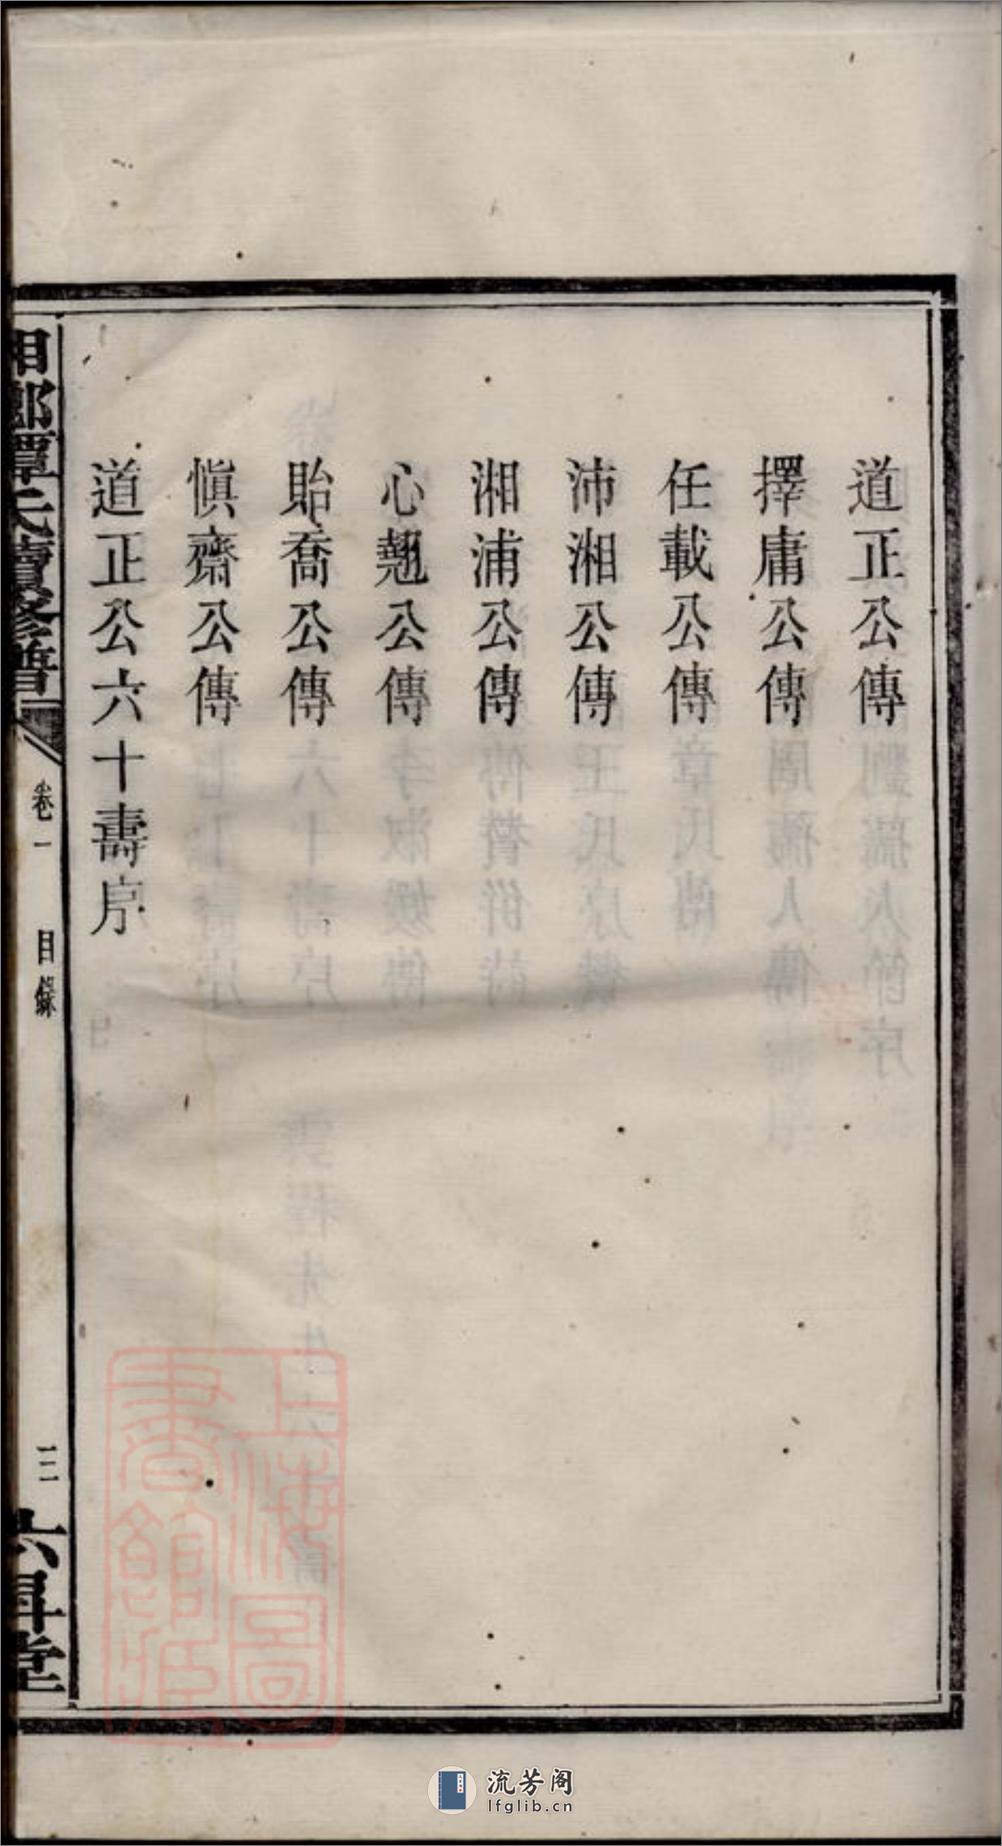 道正公傳
擇庸公傳
任載公傳
沛湘公傳
湘浦公傳
心翹公傳
貽喬公傳
愼齋公傳
道正公六十壽序
湘鄉譚氏續修譜
卷一
目錄
三
上海圖書館藏
流芳阁
lfglib.cn